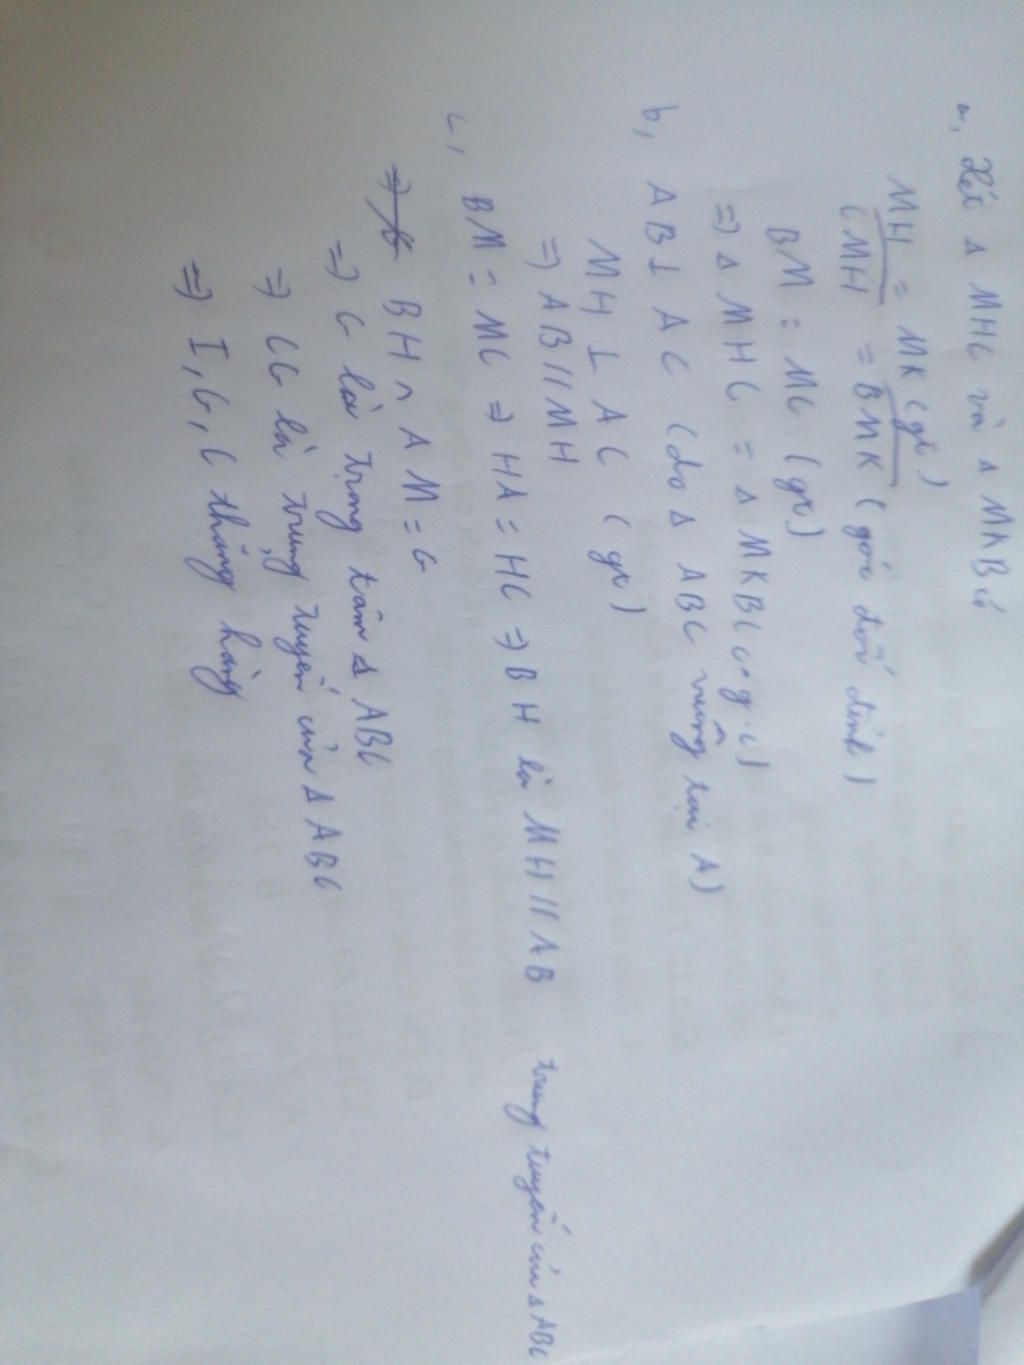 a, Xét Δ MHC và Δ MKB có
MH = MK (gt)
CMH = BMK (góc đối đỉnh)
BM = MC (gt)
=> Δ MHC = Δ MKB (c.g.c)
b, AB ⊥ AC (do Δ ABC vuông tại A)
MH ⊥ AC (gt)
=> AB // MH
c, BM = MC => HA = HC => BH là MH // AB trung tuyến của Δ ABC
BH ∩ AM = G
=> G là trọng tâm Δ ABC
=> CG là trung tuyến của Δ ABC
=> I, G, C thẳng hàng